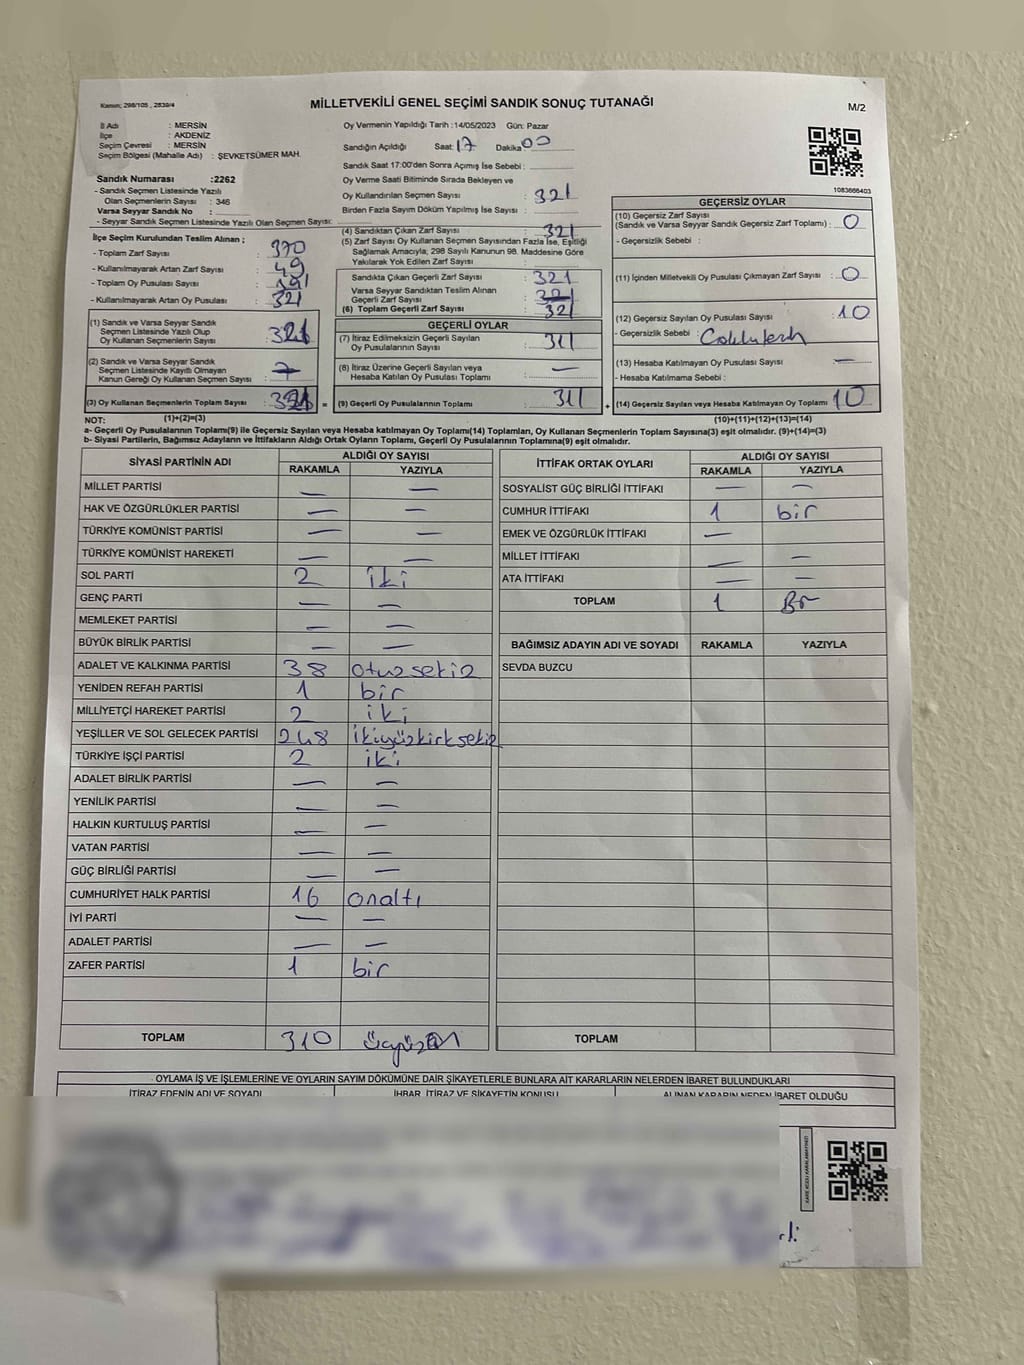 Kanun; 298/105 , 2839/4
MİLLETVEKİLİ GENEL SEÇİMİ SANDIK SONUÇ TUTANAĞI
M/2
İl Adı : MERSİN
İlçe : AKDENİZ
Seçim Çevresi : MERSİN
Seçim Bölgesi (Mahalle Adı) : ŞEVKETSÜMER MAH.
Sandık Numarası :2262
- Sandık Seçmen Listesinde Yazılı
Olan Seçmenlerin Sayısı : 346
Varsa Seyyar Sandık No :
- Seyyar Sandık Seçmen Listesinde Yazılı Olan Seçmen Sayısı:
Oy Vermenin Yapıldığı Tarih :14/05/2023 Gün: Pazar
Sandığın Açıldığı Saat: 17 Dakika 00
Sandık Saat 17:00'den Sonra Açımış İse Sebebi :
Oy Verme Saati Bitiminde Sırada Bekleyen ve
Oy Kullandırılan Seçmen Sayısı 321
Birden Fazla Sayım Döküm Yapılmış İse Sayısı :
1083666403
İlçe Seçim Kurulundan Teslim Alınan ;
- Toplam Zarf Sayısı : 370
- Kullanılmayarak Artan Zarf Sayısı : 49
- Toplam Oy Pusulası Sayısı :
- Kullanılmayarak Artan Oy Pusulası : 321
(1) Sandık ve Varsa Seyyar Sandık
Seçmen Listesinde Yazılı Olup
Oy Kullanan Seçmenlerin Sayısı : 321
(2) Sandık ve Varsa Seyyar Sandık
Seçmen Listesinde Kayıtlı Olmayan
Kanun Gereği Oy Kullanan Seçmen Sayısı :
(3) Oy Kullanan Seçmenlerin Toplam Sayısı : 321
(1)+(2)=(3)
(4) Sandıktan Çıkan Zarf Sayısı : 321
(5) Zarf Sayısı Oy Kullanan Seçmen Sayısından Fazla İse, Eşitliği
Sağlamak Amacıyla, 298 Sayılı Kanunun 98. Maddesine Göre
Yakılarak Yok Edilen Zarf Sayısı :
Sandıkta Çıkan Geçerli Zarf Sayısı : 321
Varsa Seyyar Sandıktan Teslim Alınan
Geçerli Zarf Sayısı : 321
(6) Toplam Geçerli Zarf Sayısı : 321
GEÇERLİ OYLAR
(7) İtiraz Edilmeksizin Geçerli Sayılan
Oy Pusulalarının Sayısı : 311
(8) İtiraz Üzerine Geçerli Sayılan veya
Hesaba Katılan Oy Pusulası Toplamı : —
= (9) Geçerli Oy Pusulalarının Toplamı : 311
GEÇERSİZ OYLAR
(10) Geçersiz Zarf Sayısı
(Sandık ve Varsa Seyyar Sandık Geçersiz Zarf Toplamı) : 0
- Geçersizlik Sebebi :
(11) İçinden Milletvekili Oy Pusulası Çıkmayan Zarf Sayısı : 0
(12) Geçersiz Sayılan Oy Pusulası Sayısı : 10
- Geçersizlik Sebebi :
(13) Hesaba Katılmayan Oy Pusulası Sayısı : —
- Hesaba Katılmama Sebebi :
+ (14) Geçersiz Sayılan veya Hesaba Katılmayan Oy Toplamı : 10
(10)+(11)+(12)+(13)=(14)
NOT:
a- Geçerli Oy Pusulalarının Toplamı(9) ile Geçersiz Sayılan veya Hesaba katılmayan Oy Toplamı(14) Toplamları, Oy Kullanan Seçmenlerin Toplam Sayısına(3) eşit olmalıdır. (9)+(14)=(3)
b- Siyasi Partilerin, Bağımsız Adayların ve İttifakların Aldığı Ortak Oyların Toplamı, Geçerli Oy Pusulalarının Toplamına(9) eşit olmalıdır.
SİYASİ PARTİNİN ADI ALDIĞI OY SAYISI
RAKAMLA YAZIYLA
MİLLET PARTİSİ — —
HAK VE ÖZGÜRLÜKLER PARTİSİ — —
TÜRKİYE KOMÜNİST PARTİSİ — —
TÜRKİYE KOMÜNİST HAREKETİ — —
SOL PARTİ 2 iki
GENÇ PARTİ — —
MEMLEKET PARTİSİ — —
BÜYÜK BİRLİK PARTİSİ — —
ADALET VE KALKINMA PARTİSİ 38 otuzsekiz
YENİDEN REFAH PARTİSİ 1 bir
MİLLİYETÇİ HAREKET PARTİSİ 2 iki
YEŞİLLER VE SOL GELECEK PARTİSİ 248 ikiyüzkırksekiz
TÜRKİYE İŞÇİ PARTİSİ 2 iki
ADALET BİRLİK PARTİSİ — —
YENİLİK PARTİSİ — —
HALKIN KURTULUŞ PARTİSİ — —
VATAN PARTİSİ — —
GÜÇ BİRLİĞİ PARTİSİ — —
CUMHURİYET HALK PARTİSİ 16 onaltı
İYİ PARTİ — —
ADALET PARTİSİ — —
ZAFER PARTİSİ 1 bir
TOPLAM 310 üçyüzon
İTTİFAK ORTAK OYLARI ALDIĞI OY SAYISI
RAKAMLA YAZIYLA
SOSYALİST GÜÇ BİRLİĞİ İTTİFAKI — —
CUMHUR İTTİFAKI 1 bir
EMEK VE ÖZGÜRLÜK İTTİFAKI —
MİLLET İTTİFAKI — —
ATA İTTİFAKI — —
TOPLAM 1 Bir
BAĞIMSIZ ADAYIN ADI VE SOYADI RAKAMLA YAZIYLA
SEVDA BUZCU
TOPLAM
OYLAMA İŞ VE İŞLEMLERİNE VE OYLARIN SAYIM DÖKÜMÜNE DAİR ŞİKAYETLERLE BUNLARA AİT KARARLARIN NELERDEN İBARET BULUNDUKLARI
İTİRAZ EDENİN ADI VE SOYADI İHBAR, İTİRAZ VE ŞİKAYETİN KONUSU ALINAN KARARIN NEDEN İBARET OLDUĞU